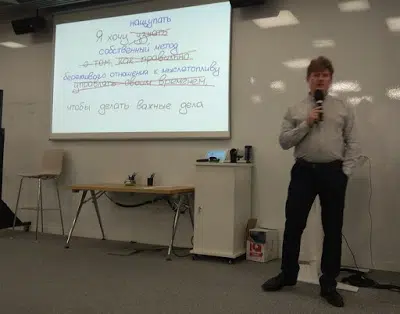 нащупать
Я хочу узнать
собственный метод
о том, как правильно
бережливого отношения к мыслетопливу
управлять своим временем,
чтобы делать важные дела